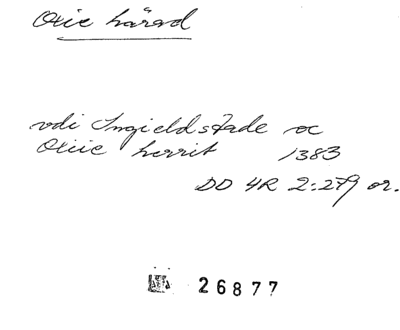 Oxie härad
vdi Ingieldstade oc
Oxiie herrit 1383
DD 4R 2:279 or.
26877